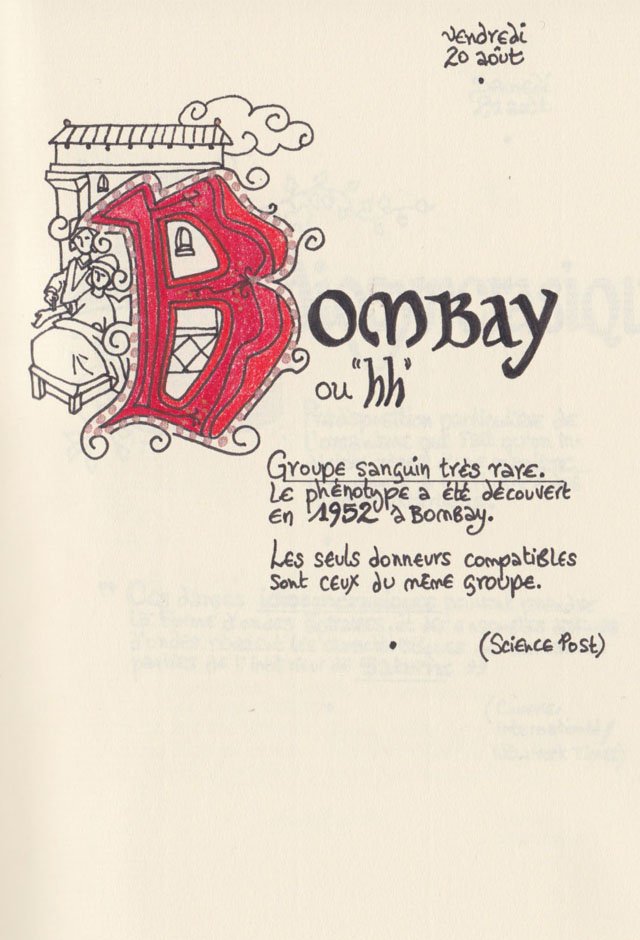 vendredi
20 août
Bombay
ou "hh"
Groupe sanguin très rare.
Le phénotype a été découvert
en 1952 à Bombay.
Les seuls donneurs compatibles
sont ceux du même groupe.
(Science Post)